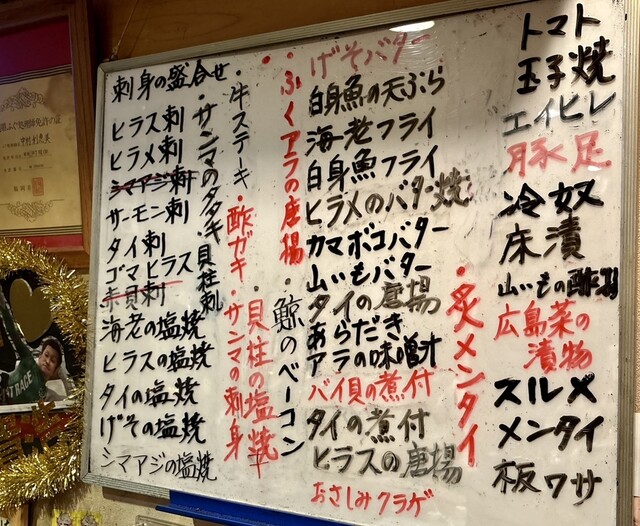 刺身の盛合せ
ヒラス刺
ヒラメ刺
シマアジ刺
サーモン刺
タイ刺
ゴマヒラス
赤貝刺
海老の塩焼
ヒラスの塩焼
タイの塩焼
げその塩焼
シマアジの塩焼
・サンマのタタキ
・貝柱刺
・牛ステーキ
・酢ガキ
・サンマの刺身
・貝柱の塩焼
・ふくアラの唐揚
・鯨のベーコン
げそバター
白身魚の天ぷら
海老フライ
白身魚フライ
ヒラメのバター焼
カマボコバター
山いもバター
タイの唐揚
あらだき
アラの味噌汁
バイ貝の煮付
タイの煮付
ヒラスの唐揚
おさしみクラゲ
・炙メンタイ
トマト
玉子焼
エイヒレ
豚足
冷奴
床漬
山いもの酢
広島菜の
漬物
スルメ
メンタイ
板ワサ